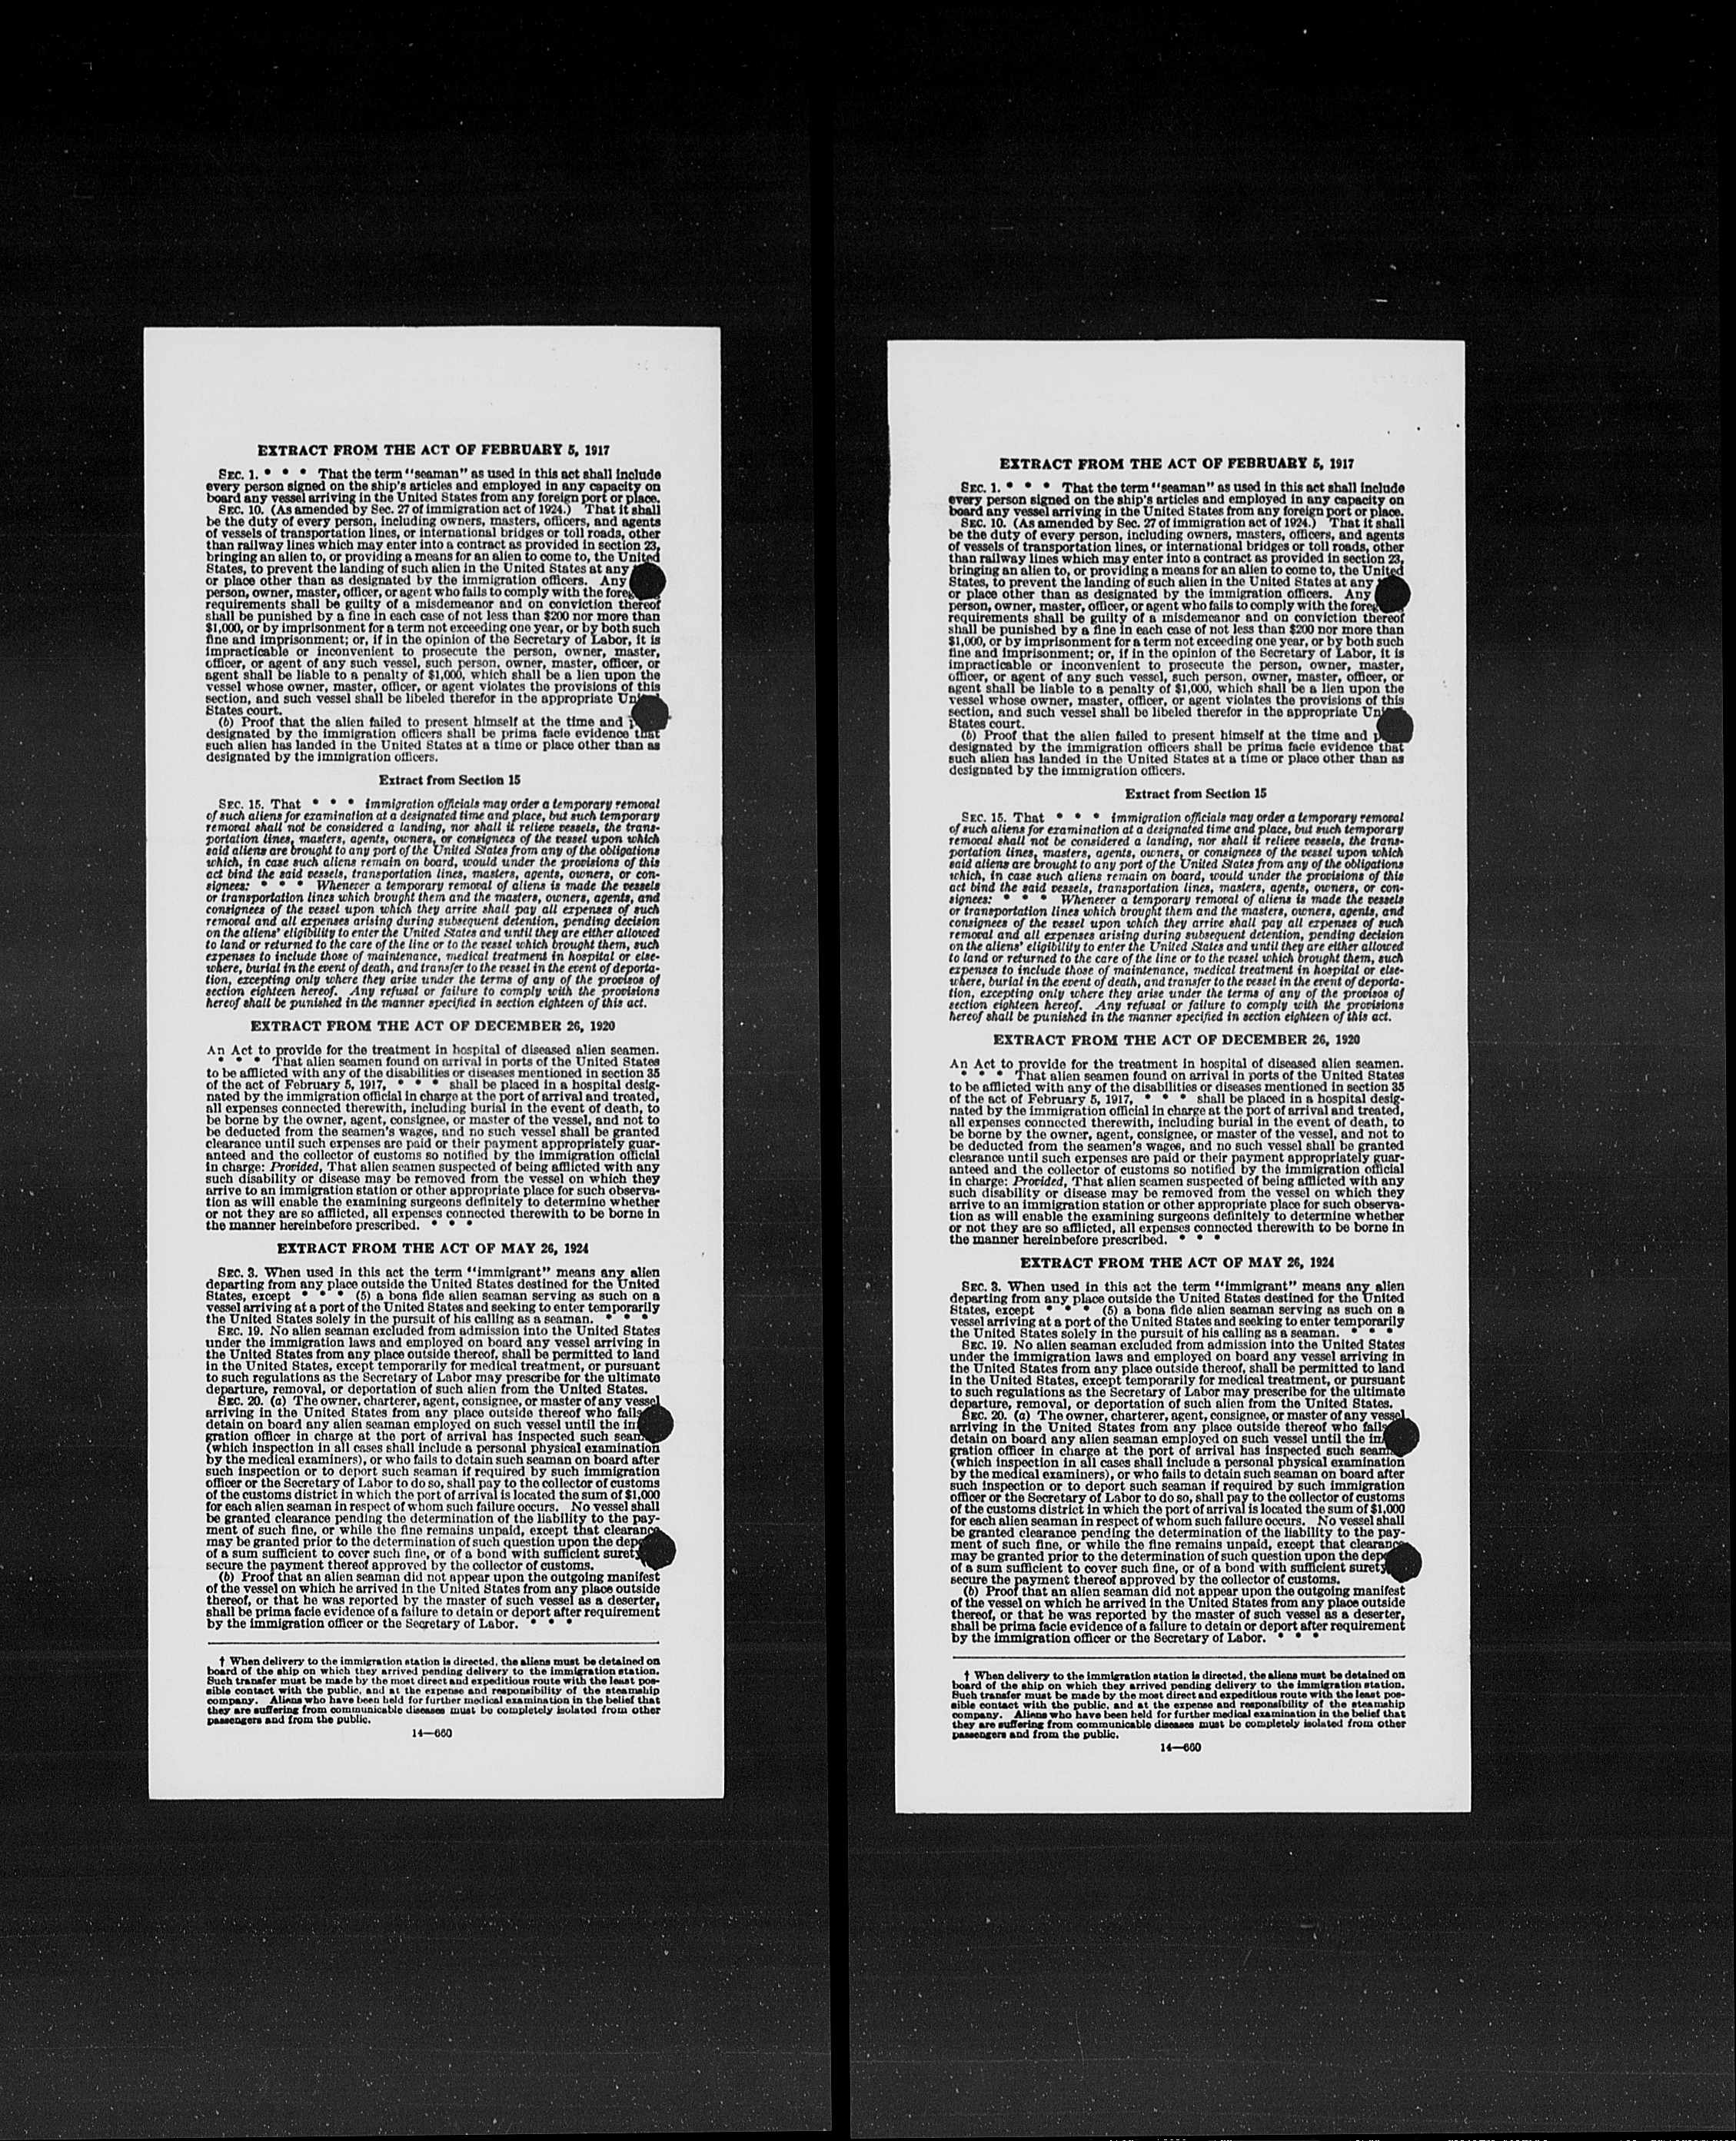 EXTRACT FROM THE ACT OF FEBRUARY 5, 1917
SEC. 1. * * * That the term "seaman" as used in this act shall include
every person signed on the ship's articles and employed in any capacity on
board any vessel arriving in the United States from any foreign port or place.
SEC. 10. (As amended by Sec. 27 of immigration act of 1924.) That it shall
be the duty of every person, including owners, masters, officers, and agents
of vessels of transportation lines, or international bridges or toll roads, other
than railway lines which may enter into a contract as provided in section 23,
bringing an alien to, or providing a means for an alien to come to, the United
States, to prevent the landing of such alien in the United States at any
or place other than as designated by the immigration officers. Any
person, owner, master, officer, or agent who fails to comply with the foreg
requirements shall be guilty of a misdemeanor and on conviction thereof
shall be punished by a fine in each case of not less than $200 nor more than
$1,000, or by imprisonment for a term not exceeding one year, or by both such
fine and imprisonment; or, if in the opinion of the Secretary of Labor, it is
impracticable or inconvenient to prosecute the person, owner, master,
officer, or agent of any such vessel, such person, owner, master, officer, or
agent shall be liable to a penalty of $1,000, which shall be a lien upon the
vessel whose owner, master, officer, or agent violates the provisions of this
section, and such vessel shall be libeled therefor in the appropriate Uni
States court.
(b) Proof that the alien failed to present himself at the time and p
designated by the immigration officers shall be prima facie evidence that
such alien has landed in the United States at a time or place other than as
designated by the immigration officers.
Extract from Section 15
SEC. 15. That * * * immigration officials may order a temporary removal
of such aliens for examination at a designated time and place, but such temporary
removal shall not be considered a landing, nor shall it relieve vessels, the trans-
portation lines, masters, agents, owners, or consignees of the vessel upon which
said aliens are brought to any port of the United States from any of the obligations
which, in case such aliens remain on board, would under the provisions of this
act bind the said vessels, transportation lines, masters, agents, owners, or con-
signees: * * * Whenever a temporary removal of aliens is made the vessels
or transportation lines which brought them and the masters, owners, agents, and
consignees of the vessel upon which they arrive shall pay all expenses of such
removal and all expenses arising during subsequent detention, pending decision
on the aliens' eligibility to enter the United States and until they are either allowed
to land or returned to the care of the line or to the vessel which brought them, such
expenses to include those of maintenance, medical treatment in hospital or else-
where, burial in the event of death, and transfer to the vessel in the event of deporta-
tion, excepting only where they arise under the terms of any of the provisos of
section eighteen hereof. Any refusal or failure to comply with the provisions
hereof shall be punished in the manner specified in section eighteen of this act.
EXTRACT FROM THE ACT OF DECEMBER 26, 1920
An Act to provide for the treatment in hospital of diseased alien seamen.
* * * That alien seamen found on arrival in ports of the United States
to be afflicted with any of the disabilities or diseases mentioned in section 35
of the act of February 5, 1917, * * * shall be placed in a hospital desig-
nated by the immigration official in charge at the port of arrival and treated,
all expenses connected therewith, including burial in the event of death, to
be borne by the owner, agent, consignee, or master of the vessel, and not to
be deducted from the seamen's wages, and no such vessel shall be granted
clearance until such expenses are paid or their payment appropriately guar-
anteed and the collector of customs so notified by the immigration official
in charge: Provided, That alien seamen suspected of being afflicted with any
such disability or disease may be removed from the vessel on which they
arrive to an immigration station or other appropriate place for such observa-
tion as will enable the examining surgeons definitely to determine whether
or not they are so afflicted, all expenses connected therewith to be borne in
the manner hereinbefore prescribed. * * *
EXTRACT FROM THE ACT OF MAY 26, 1924
SEC. 3. When used in this act the term "immigrant" means any alien
departing from any place outside the United States destined for the United
States, except * * * (5) a bona fide alien seaman serving as such on a
vessel arriving at a port of the United States and seeking to enter temporarily
the United States solely in the pursuit of his calling as a seaman. * * *
SEC. 19. No alien seaman excluded from admission into the United States
under the immigration laws and employed on board any vessel arriving in
the United States from any place outside thereof, shall be permitted to land
in the United States, except temporarily for medical treatment, or pursuant
to such regulations as the Secretary of Labor may prescribe for the ultimate
departure, removal, or deportation of such alien from the United States.
SEC. 20. (a) The owner, charterer, agent, consignee, or master of any vessel
arriving in the United States from any place outside thereof who fails
detain on board any alien seaman employed on such vessel until the im
gration officer in charge at the port of arrival has inspected such seam
(which inspection in all cases shall include a personal physical examination
by the medical examiners), or who fails to detain such seaman on board after
such inspection or to deport such seaman if required by such immigration
officer or the Secretary of Labor to do so, shall pay to the collector of customs
of the customs district in which the port of arrival is located the sum of $1,000
for each alien seaman in respect of whom such failure occurs. No vessel shall
be granted clearance pending the determination of the liability to the pay-
ment of such fine, or while the fine remains unpaid, except that clearance
may be granted prior to the determination of such question upon the depo
of a sum sufficient to cover such fine, or of a bond with sufficient surety
secure the payment thereof approved by the collector of customs.
(b) Proof that an alien seaman did not appear upon the outgoing manifest
of the vessel on which he arrived in the United States from any place outside
thereof, or that he was reported by the master of such vessel as a deserter,
shall be prima facie evidence of a failure to detain or deport after requirement
by the immigration officer or the Secretary of Labor. * * *
† When delivery to the immigration station is directed, the aliens must be detained on
board of the ship on which they arrived pending delivery to the immigration station.
Such transfer must be made by the most direct and expeditious route with the least pos-
sible contact with the public, and at the expense and responsibility of the steamship
company. Aliens who have been held for further medical examination in the belief that
they are suffering from communicable diseases must be completely isolated from other
passengers and from the public.
14—660
EXTRACT FROM THE ACT OF FEBRUARY 5, 1917
SEC. 1. * * * That the term "seaman" as used in this act shall include
every person signed on the ship's articles and employed in any capacity on
board any vessel arriving in the United States from any foreign port or place.
SEC. 10. (As amended by Sec. 27 of immigration act of 1924.) That it shall
be the duty of every person, including owners, masters, officers, and agents
of vessels of transportation lines, or international bridges or toll roads, other
than railway lines which may enter into a contract as provided in section 23,
bringing an alien to, or providing a means for an alien to come to, the United
States, to prevent the landing of such alien in the United States at any
or place other than as designated by the immigration officers. Any
person, owner, master, officer, or agent who fails to comply with the foreg
requirements shall be guilty of a misdemeanor and on conviction thereof
shall be punished by a fine in each case of not less than $200 nor more than
$1,000, or by imprisonment for a term not exceeding one year, or by both such
fine and imprisonment; or, if in the opinion of the Secretary of Labor, it is
impracticable or inconvenient to prosecute the person, owner, master,
officer, or agent of any such vessel, such person, owner, master, officer, or
agent shall be liable to a penalty of $1,000, which shall be a lien upon the
vessel whose owner, master, officer, or agent violates the provisions of this
section, and such vessel shall be libeled therefor in the appropriate Uni
States court.
(b) Proof that the alien failed to present himself at the time and p
designated by the immigration officers shall be prima facie evidence that
such alien has landed in the United States at a time or place other than as
designated by the immigration officers.
Extract from Section 15
SEC. 15. That * * * immigration officials may order a temporary removal
of such aliens for examination at a designated time and place, but such temporary
removal shall not be considered a landing, nor shall it relieve vessels, the trans-
portation lines, masters, agents, owners, or consignees of the vessel upon which
said aliens are brought to any port of the United States from any of the obligations
which, in case such aliens remain on board, would under the provisions of this
act bind the said vessels, transportation lines, masters, agents, owners, or con-
signees: * * * Whenever a temporary removal of aliens is made the vessels
or transportation lines which brought them and the masters, owners, agents, and
consignees of the vessel upon which they arrive shall pay all expenses of such
removal and all expenses arising during subsequent detention, pending decision
on the aliens' eligibility to enter the United States and until they are either allowed
to land or returned to the care of the line or to the vessel which brought them, such
expenses to include those of maintenance, medical treatment in hospital or else-
where, burial in the event of death, and transfer to the vessel in the event of deporta-
tion, excepting only where they arise under the terms of any of the provisos of
section eighteen hereof. Any refusal or failure to comply with the provisions
hereof shall be punished in the manner specified in section eighteen of this act.
EXTRACT FROM THE ACT OF DECEMBER 26, 1920
An Act to provide for the treatment in hospital of diseased alien seamen.
* * * That alien seamen found on arrival in ports of the United States
to be afflicted with any of the disabilities or diseases mentioned in section 35
of the act of February 5, 1917, * * * shall be placed in a hospital desig-
nated by the immigration official in charge at the port of arrival and treated,
all expenses connected therewith, including burial in the event of death, to
be borne by the owner, agent, consignee, or master of the vessel, and not to
be deducted from the seamen's wages, and no such vessel shall be granted
clearance until such expenses are paid or their payment appropriately guar-
anteed and the collector of customs so notified by the immigration official
in charge: Provided, That alien seamen suspected of being afflicted with any
such disability or disease may be removed from the vessel on which they
arrive to an immigration station or other appropriate place for such observa-
tion as will enable the examining surgeons definitely to determine whether
or not they are so afflicted, all expenses connected therewith to be borne in
the manner hereinbefore prescribed. * * *
EXTRACT FROM THE ACT OF MAY 26, 1924
SEC. 3. When used in this act the term "immigrant" means any alien
departing from any place outside the United States destined for the United
States, except * * * (5) a bona fide alien seaman serving as such on a
vessel arriving at a port of the United States and seeking to enter temporarily
the United States solely in the pursuit of his calling as a seaman. * * *
SEC. 19. No alien seaman excluded from admission into the United States
under the immigration laws and employed on board any vessel arriving in
the United States from any place outside thereof, shall be permitted to land
in the United States, except temporarily for medical treatment, or pursuant
to such regulations as the Secretary of Labor may prescribe for the ultimate
departure, removal, or deportation of such alien from the United States.
SEC. 20. (a) The owner, charterer, agent, consignee, or master of any vessel
arriving in the United States from any place outside thereof who fails
detain on board any alien seaman employed on such vessel until the im
gration officer in charge at the port of arrival has inspected such seam
(which inspection in all cases shall include a personal physical examination
by the medical examiners), or who fails to detain such seaman on board after
such inspection or to deport such seaman if required by such immigration
officer or the Secretary of Labor to do so, shall pay to the collector of customs
of the customs district in which the port of arrival is located the sum of $1,000
for each alien seaman in respect of whom such failure occurs. No vessel shall
be granted clearance pending the determination of the liability to the pay-
ment of such fine, or while the fine remains unpaid, except that clearance
may be granted prior to the determination of such question upon the depo
of a sum sufficient to cover such fine, or of a bond with sufficient surety
secure the payment thereof approved by the collector of customs.
(b) Proof that an alien seaman did not appear upon the outgoing manifest
of the vessel on which he arrived in the United States from any place outside
thereof, or that he was reported by the master of such vessel as a deserter,
shall be prima facie evidence of a failure to detain or deport after requirement
by the immigration officer or the Secretary of Labor. * * *
† When delivery to the immigration station is directed, the aliens must be detained on
board of the ship on which they arrived pending delivery to the immigration station.
Such transfer must be made by the most direct and expeditious route with the least pos-
sible contact with the public, and at the expense and responsibility of the steamship
company. Aliens who have been held for further medical examination in the belief that
they are suffering from communicable diseases must be completely isolated from other
passengers and from the public.
14—660